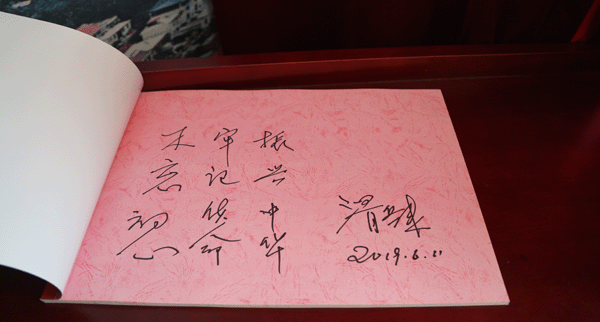 不忘初心
牢记使命
振兴中华
2019.6.11